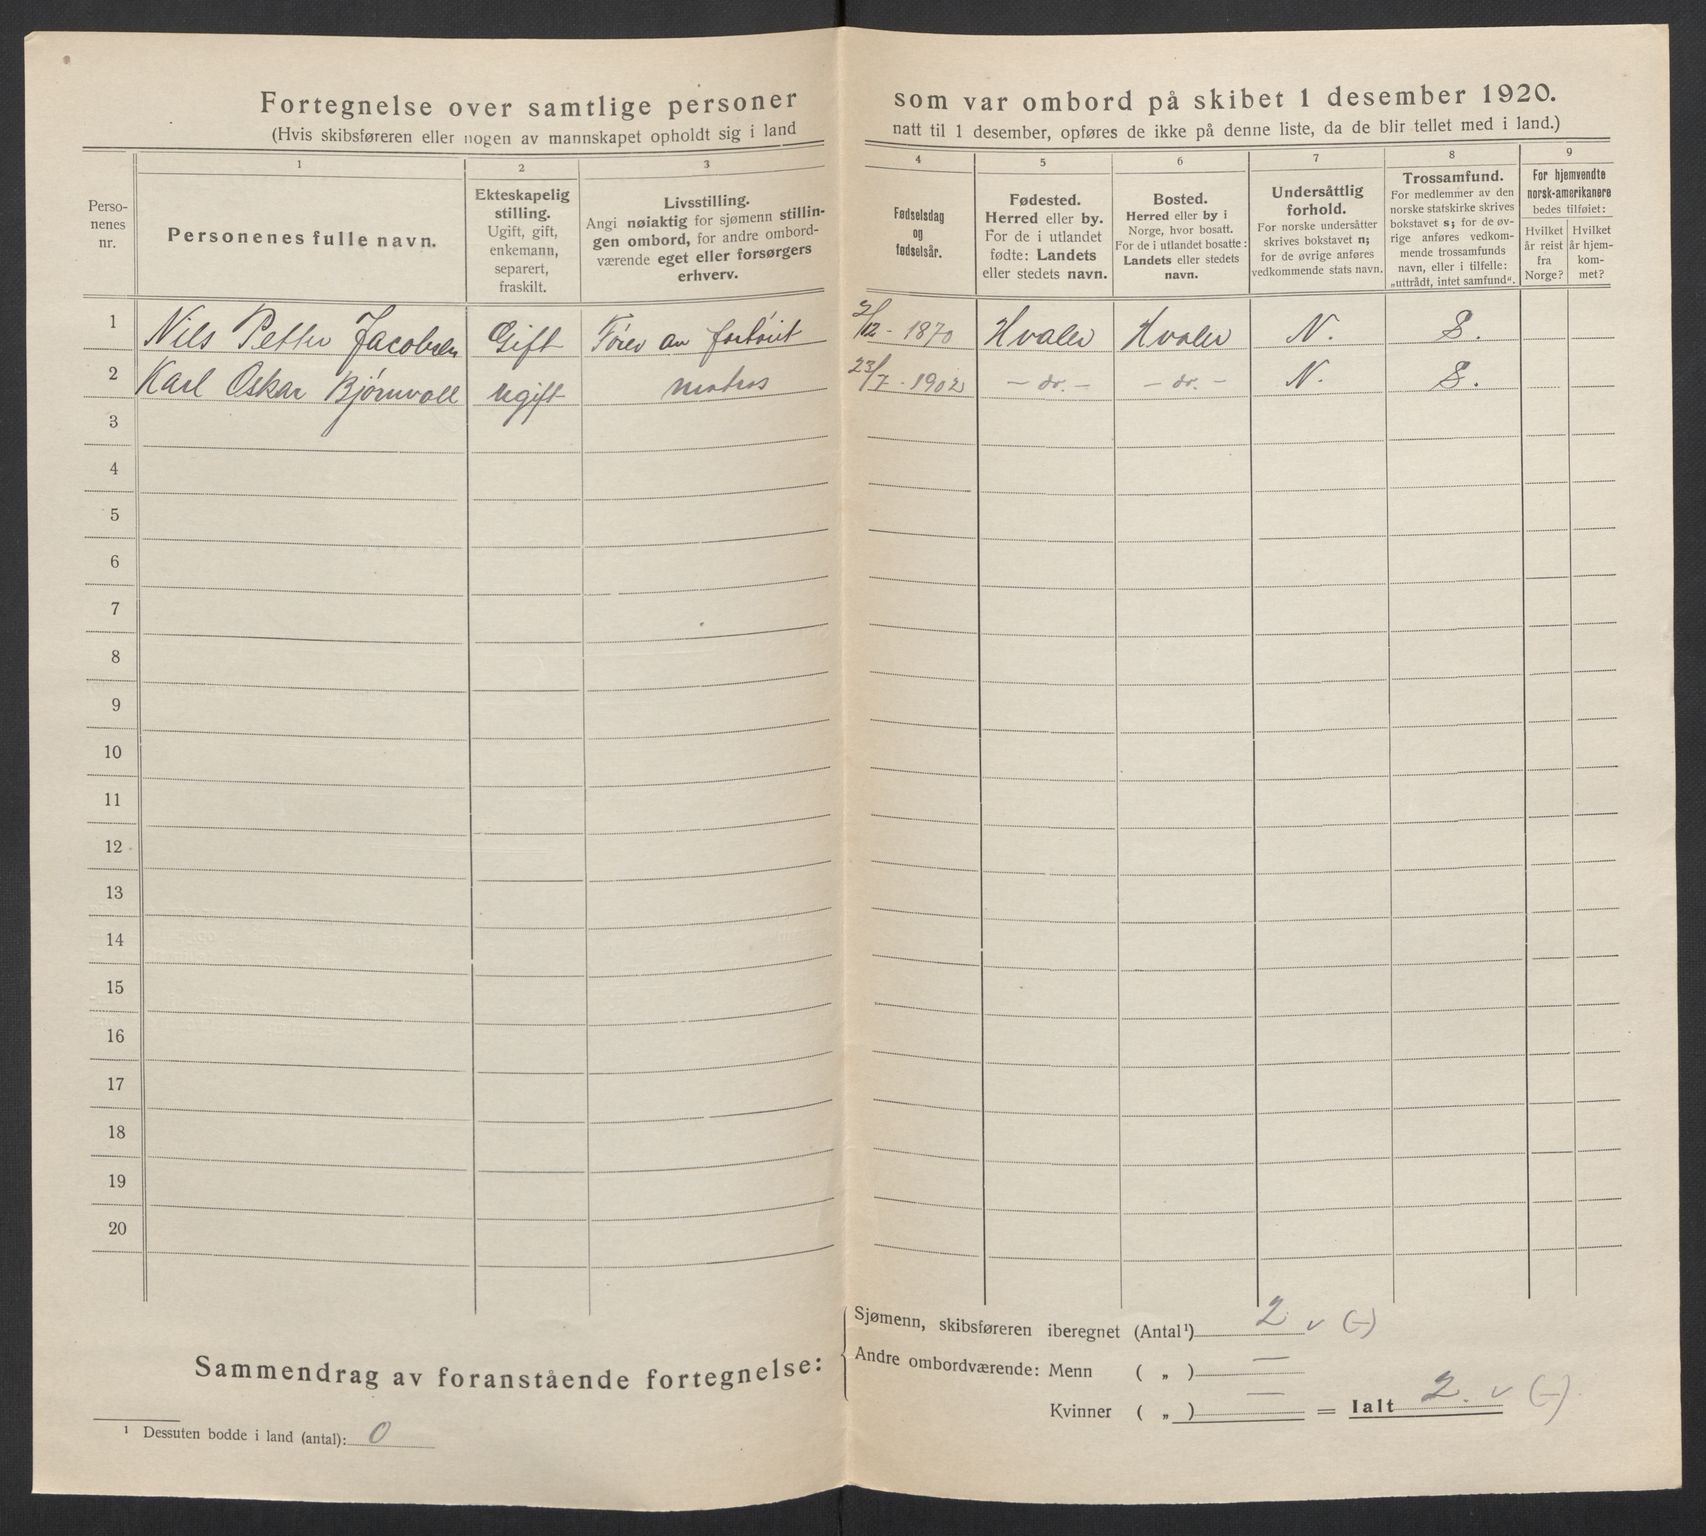 Fortegnelse over samtlige personer som var ombord på skibet 1 desember 1920.
(Hvis skibsføreren eller nogen av mannskapet opholdt sig i land natt til 1 desember, opføres de ikke på denne liste, da de blir tellet med i land.)
1 2 3 4 5 6 7 8 9
Perso-
nenes
nr.
Personenes fulle navn.
Ekteskapelig
stilling.
Ugift, gift,
enkemann,
separert,
fraskilt.
Livsstilling.
Angi nøiaktig for sjømenn stillin-
gen ombord, for andre ombord-
værende eget eller forsørgers
erhverv.
Fødselsdag
og
fødselsår.
Fødested.
Herred eller by.
For de i utlandet
fødte: Landets
eller stedets navn.
Bosted.
Herred eller by i
Norge, hvor bosatt.
For de i utlandet bosatte:
Landets eller stedets
navn.
Undersåttlig
forhold.
For norske undersåtter
skrives bokstavet n;
for de øvrige anføres
vedkommende stats navn.
Trossamfund.
For medlemmer av den
norske statskirke skrives
bokstavet s; for de øv-
rige anføres vedkom-
mende trossamfunds
navn, eller i tilfelle:
„uttrådt, intet samfund“.
For hjemvendte
norsk-amerikanere
bedes tilføiet:
Hvilket
år reist
fra
Norge?
Hvilket
år hjem-
kom-
met?
1 Nils Petter Jacobsen Gift Fører av fartøit 2/12 - 1870 Hvaler Hvaler N. S.
2 Karl Oskar Bjørnvall ugift matros 23/7 - 1902 - do. - - do. - N. S.
3
4
5
6
7
8
9
10
11
12
13
14
15
16
17
18
19
20
Sammendrag av foranstående fortegnelse:
Sjømenn, skibsføreren iberegnet (Antal¹) 2 v (-)
Andre ombordværende: Menn ( „ ) —
Kvinner ( „ ) — = Ialt 2. v (-)
¹ Dessuten bodde i land (antal): 0